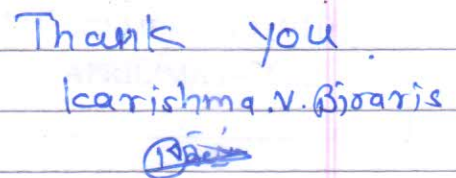 Thank you.
Karishma.V.Bioaris